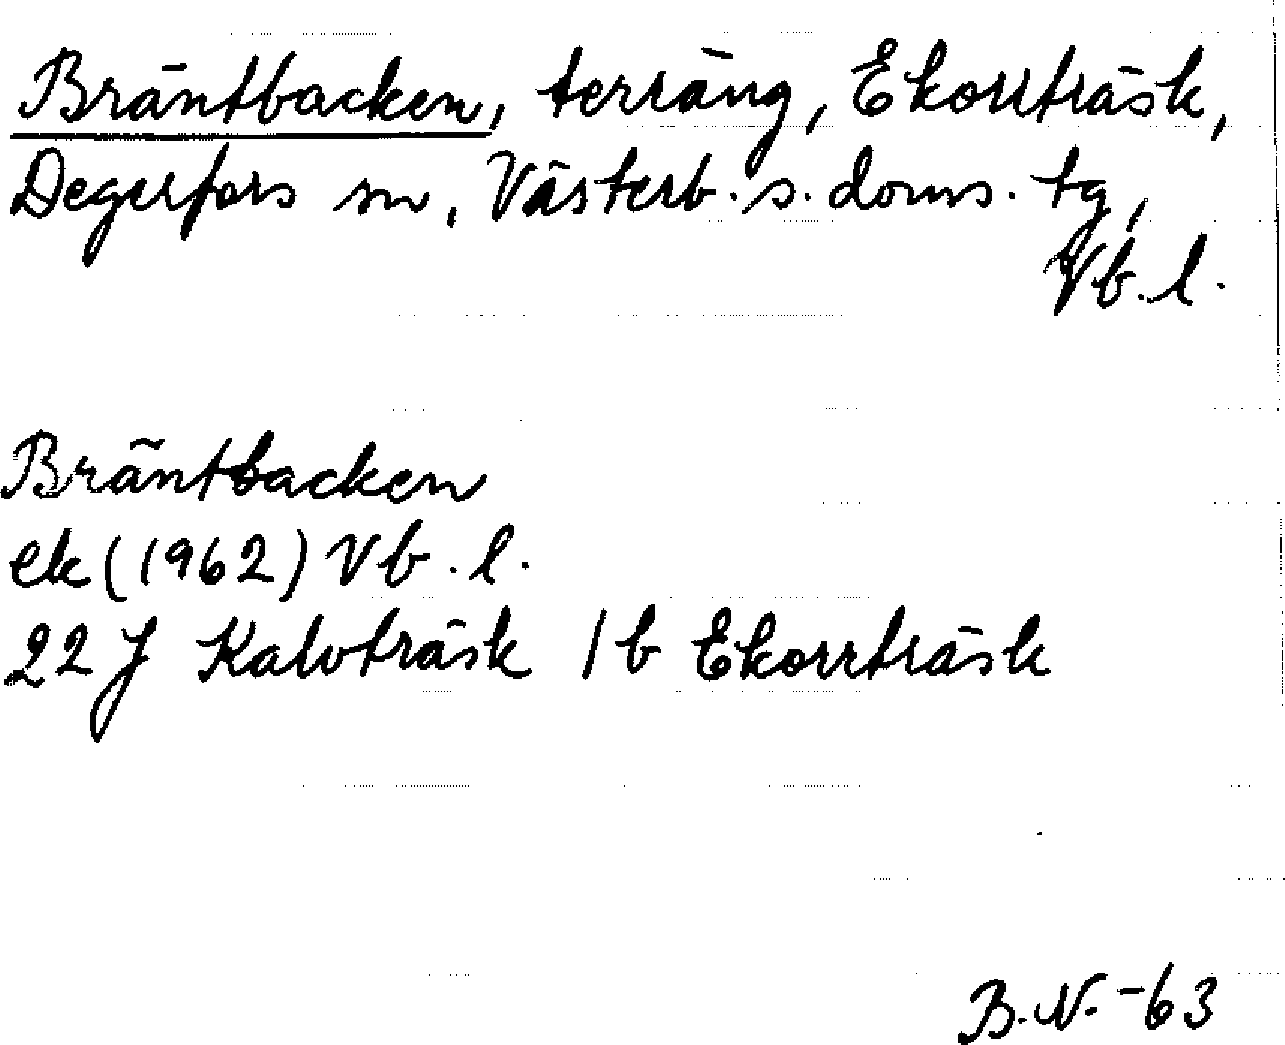 Bräntbacken, terräng, Ekorrträsk,
Degerfors sn, Västerb. s. doms. tg,
Vb. l.
Bräntbacken
ek (1962) Vb. l.
22 J Kalvträsk 1 b Ekorrträsk
B.N. -63